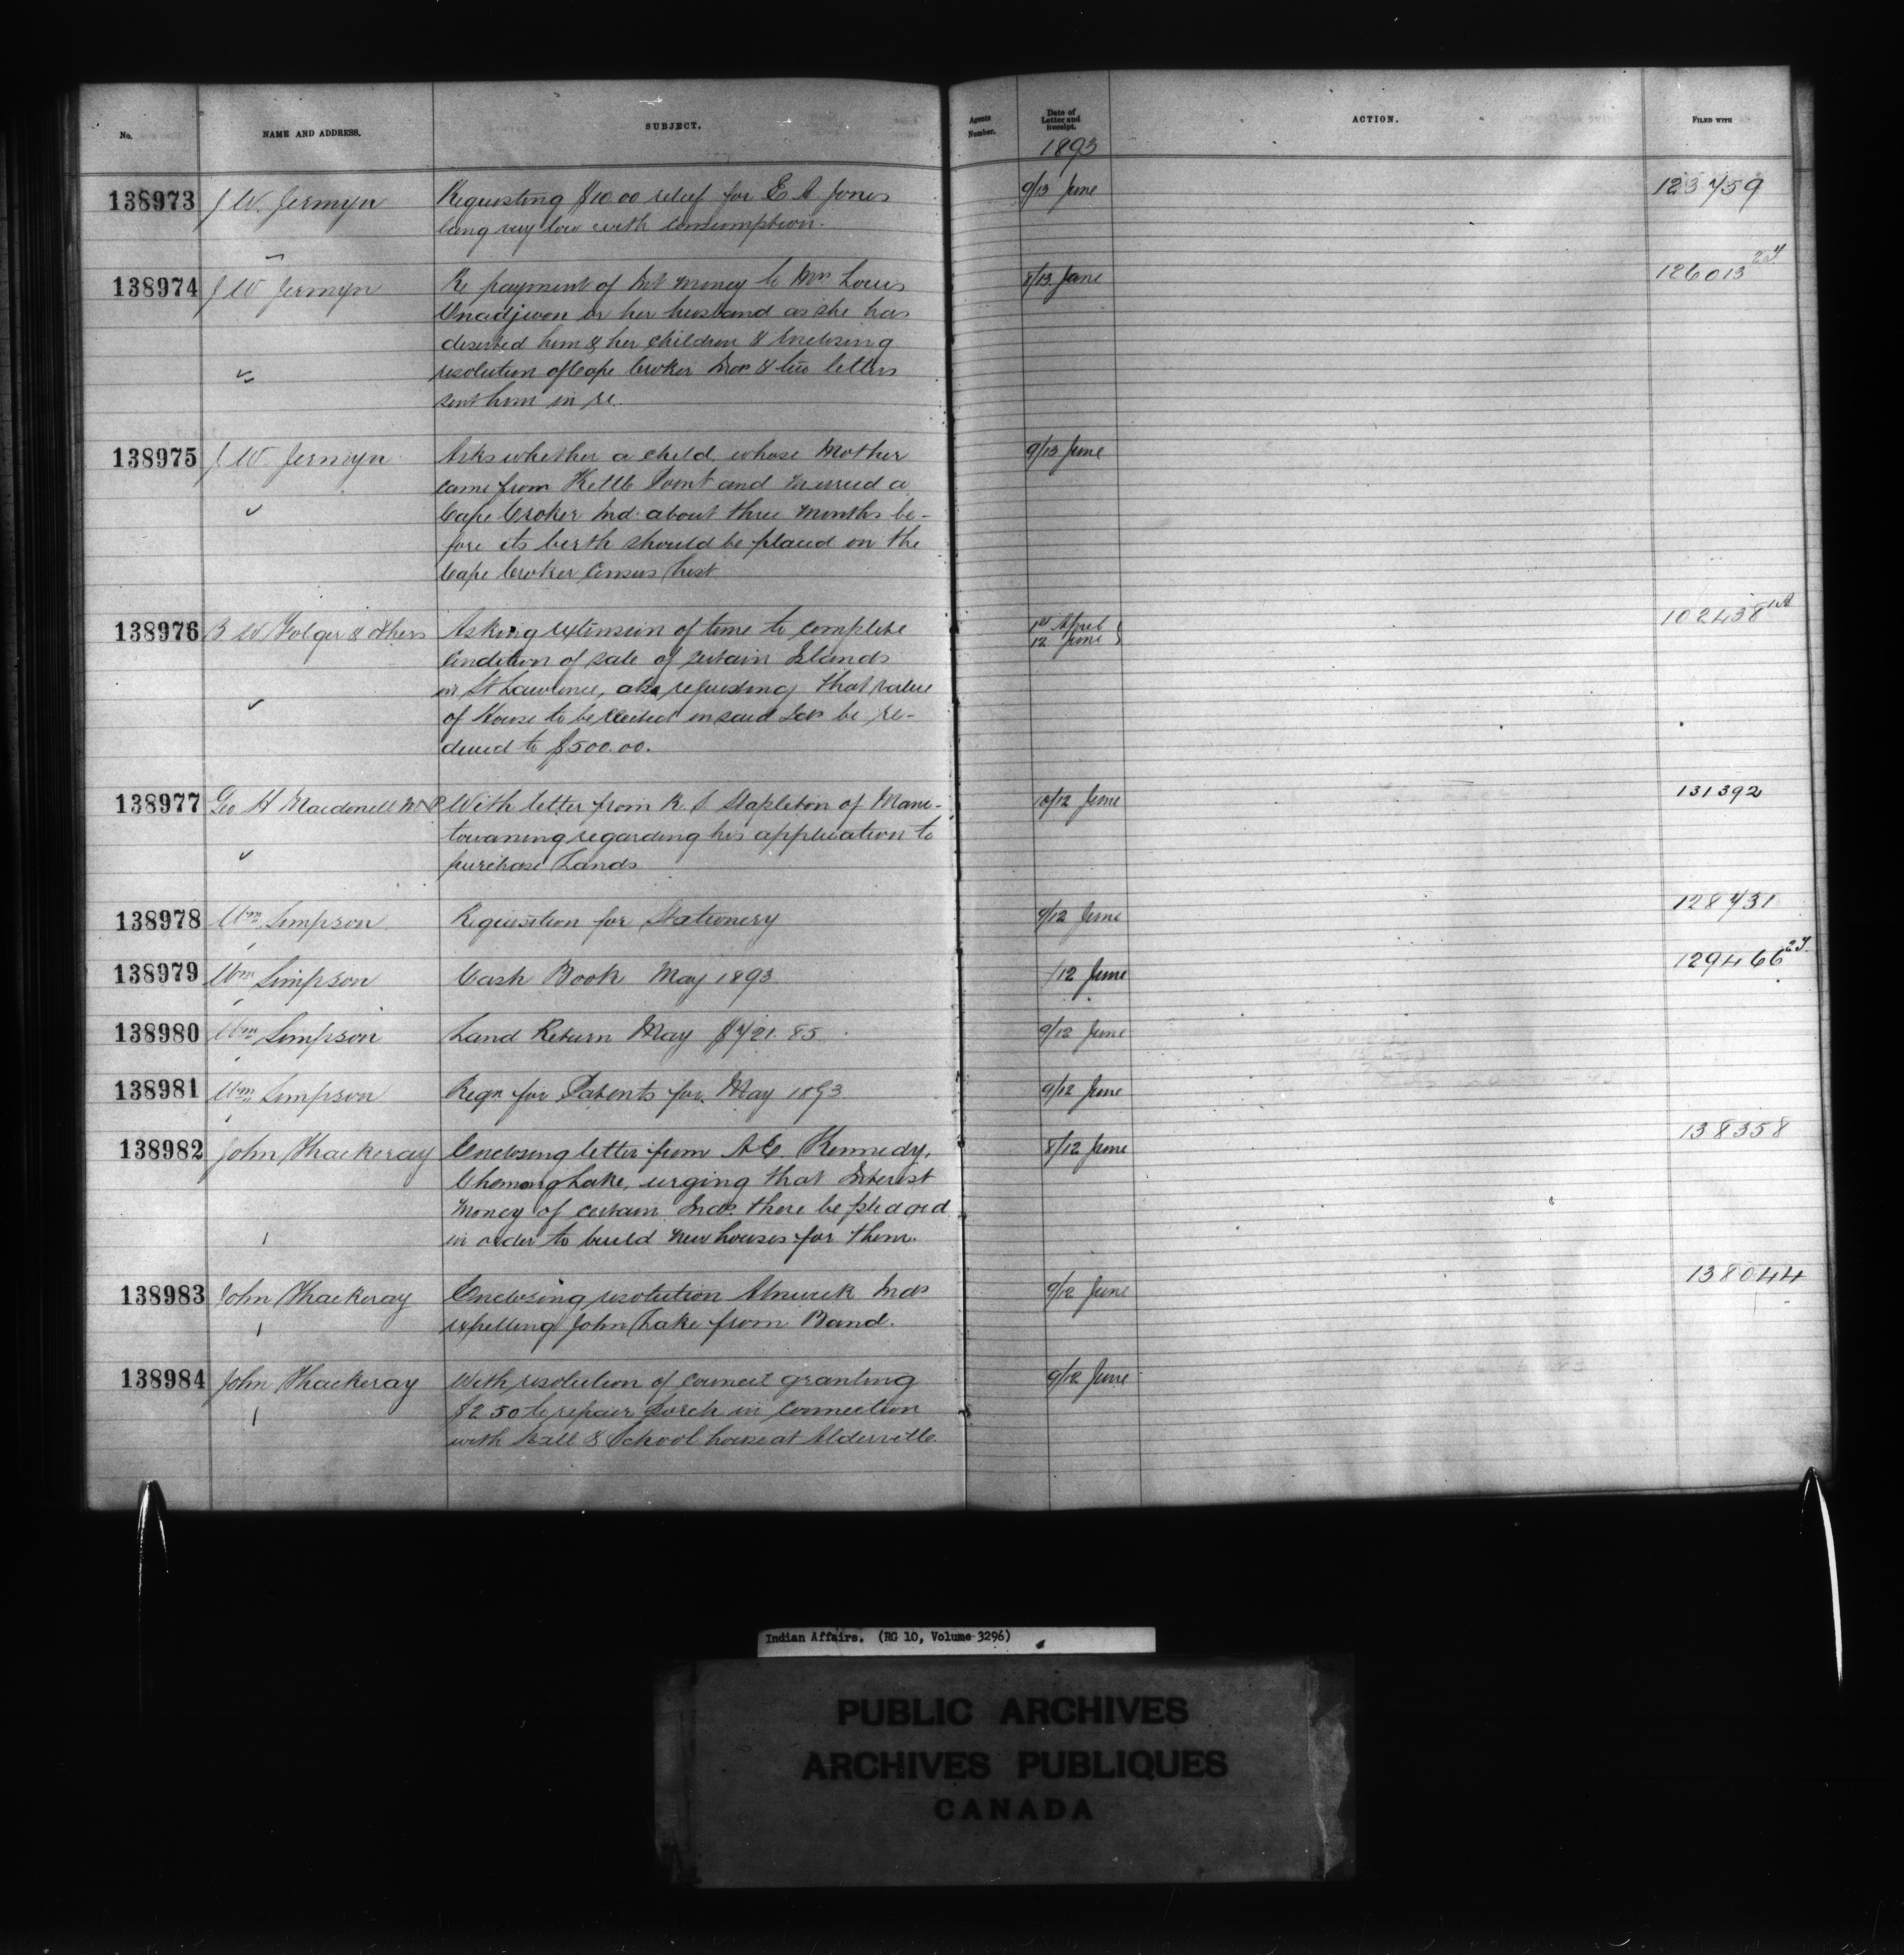 No.
NAME AND ADDRESS.
SUBJECT.
Agents Number.
Date of Letter and Receipt.
ACTION.
FILED WITH
1893
138973 J W. Jermyn Requesting $10.00 relief for E A Jones 9/13 June 123759
being very low with consumption.
138974 J W Jermyn Re payment of Int money to Mrs Louis 8/13 June 126013
Onadjiwon or her husband as she has
deserted him & her children & Enclosing
resolution of Cape Croker Inds & two letters
sent him in re.
138975 J W. Jermyn Asks whether a child whose Mother 9/13 June
came from Kettle Point and married a
Cape Croker Ind. about three months be-
fore its birth should be placed on the
Cape Croker Census List
138976 B W Folger & Others Asking extension of time to complete 1st April 102438
Condition of sale of certain Islands 12 June
in St Lawrence, also requesting that value
of House to be erected on said Isds be re-
duced to $500.00.
138977 Geo H Macdonell M P With letter from R. S Stapleton of Mani- 10/12 June 131392
towaning regarding his application to
purchase Lands
138978 Wm Simpson Requisition for Stationery 9/12 June 128731
138979 Wm Simpson Cash Book May 1893. /12 June 129466
138980 Wm Simpson Land Return May $721.85 9/12 June
138981 Wm Simpson Reqn for Patents for May 1893 9/12 June
138982 John Thackeray Enclosing letter from A E. Kennedy, 8/12 June 138358
Chemong Lake, urging that Interest
money of certain Inds. there be pledged
in order to build new houses for them.
138983 John Thackeray Enclosing resolution Alnwick Inds 9/12 June 138044
expelling John Lake from Band.
138984 John Thackeray With resolution of council granting 9/12 June
$2.50 to repair Porch in connection
with Hall & School house at Alderville.
Indian Affairs. (RG 10, Volume 3296)
PUBLIC ARCHIVES
ARCHIVES PUBLIQUES
CANADA